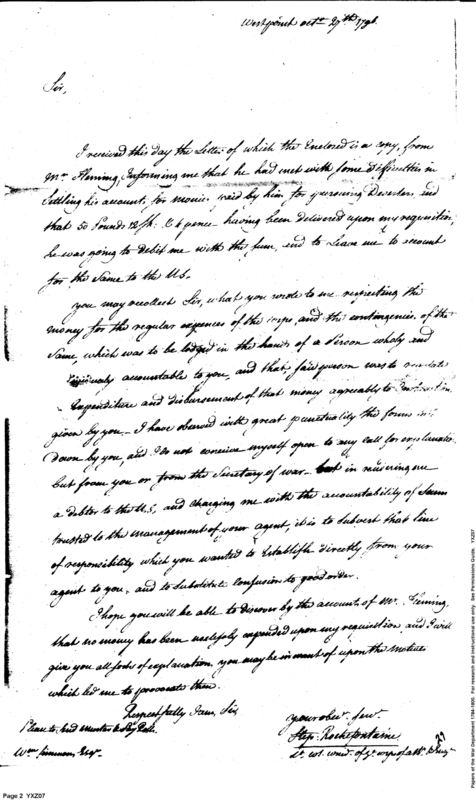 Westpoint octr 27th 1796
Sir,
I received this day the Letter of which the Enclosed is a copy, from
Mr. Fleming, Informing me that he had met with some Difficulties in
Settling his account, for monies paid by him for pursuing Deserters and
that 50 Pounds 12/sh. & 6 pence having been delivered upon my requisition,
he was going to debit me with the sum, and to Leave me to account
for the Same to the U.S.
you may recollect Sir, what you wrote to me respecting the
money for the regular expences of the corps, and the contingencies of the
Same, which was to be lodged in the hands of a Person wholy and
accountable to you, and that said person was to
Expenditure and disbursement of that money agreably to
given by you - I have observed with great punctuality the forms
down by you, and I do not conceive myself open to any call for explanation
but from you or from the Secretary of war - but in rendering me
a debtor to the U.S, and charging me with the accountability of Sums
trusted to the management of your agent, it is to subvert that line
of responsibility which you wanted to Establish directly from your
agent to you, and to substitute confusion to good order.
I hope you will be able to discover by the accounts of Mr. Fleming,
that no money has been uselessly expended upon my requisition, and I will
give you all sorts of explanation you may be in want of upon the motives
which led me to provocate them.
Respectfully I am, Sir
your obert. serv.
Please to send muster & Pay Roll.
Step. Rochefontaine
Wm. Simmons Esqr.
Lt. Col. comd. of ye corps of a &
27
Page 2 YXZ07
Papers of the War Department 1784-1800. For research and instructional use only. See Permissions Guide. YXZ07